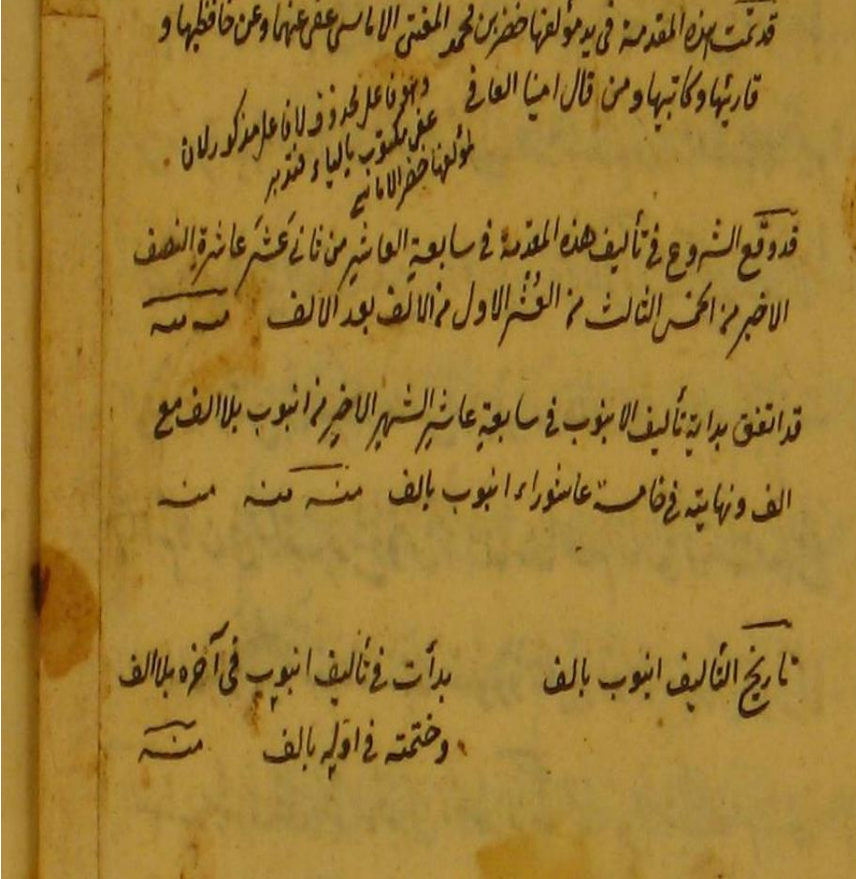 قد تمت هذه المقدمة فى يد مؤلفها خضر بن محمد المفتى الاماسى عفى عنهما وعن حافظيها و
قاريئها وكاتبيها ومن قال امينا العافى
وهو فاعل محذوف لا فاعل مذكور لان
عفى مكتوب بالياء فتدبر
لمؤلفها خضر الاماسى
قد وقع الشروع فى تأليف هذه المقدمة فى سابعة العاشر من ثانى عشر عاشرة النصف
الاخير من الخمس الثالث من العُشْر الاول من الالف بعد الالف منه منه
قد اتفق بداية تأليف الانبوب فى سابعة عاشر الشهر الاخير من انبوب بلا الف مع
الف ونهايته فى خامسة عاشوراء انبوب بالف منه منه منه
تاريخ التأليف انبوب بالف
بدأت فى تأليف انبوب فى آخره بلا الف
وختمته فى اوله بالف منه